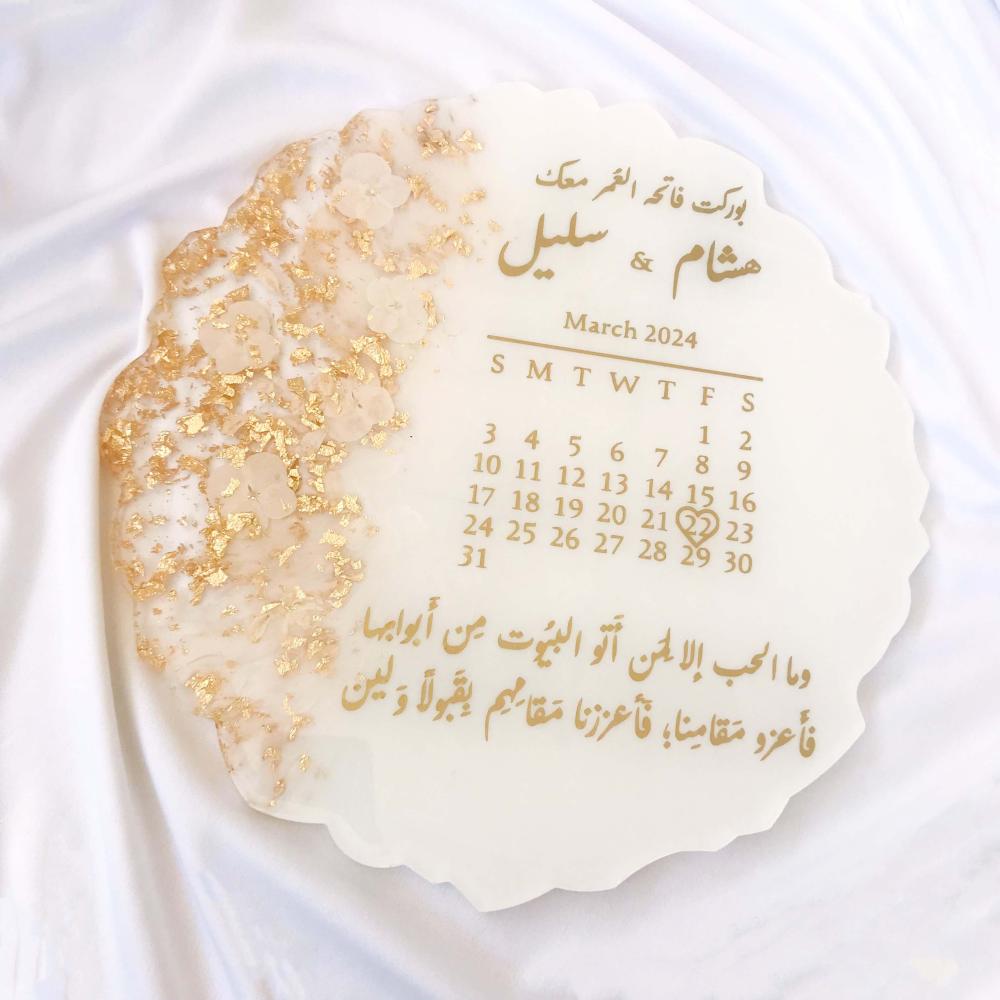 بوركت فاتحه العُمر معك
هشام & سليل
March 2024
S M T W T F S
1 2
3 4 5 6 7 8 9
10 11 12 13 14 15 16
17 18 19 20 21 22 23
24 25 26 27 28 29 30
31
وما الحب إلا لمن أَتَو البيُوت مِن أَبوابها
فَأَعزو مَقامِنا؛ فَأعززنا مَقامِهِم بِقَبولاً وَ لين